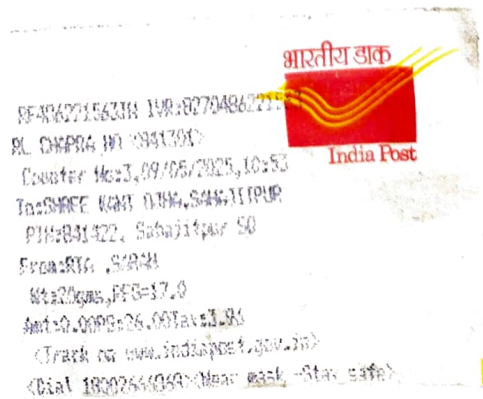 भारतीय डाक
India Post
RF406221563IN IVR:827048622156
RL CHAPRA HO <841301>
Counter No:3,09/05/2025,10:53
To:SHREE KANT OJHA,SAHAJITPUR
PIN:841422, Sahajitpur SO
From:RTA ,SARAN
Wt:20gms,REG=17.0
Amt:0.00PS:26.00Tax:3.96
<Track on www.indiapost.gov.in>
<Dial 18002666868><Wear mask -Stay safe>